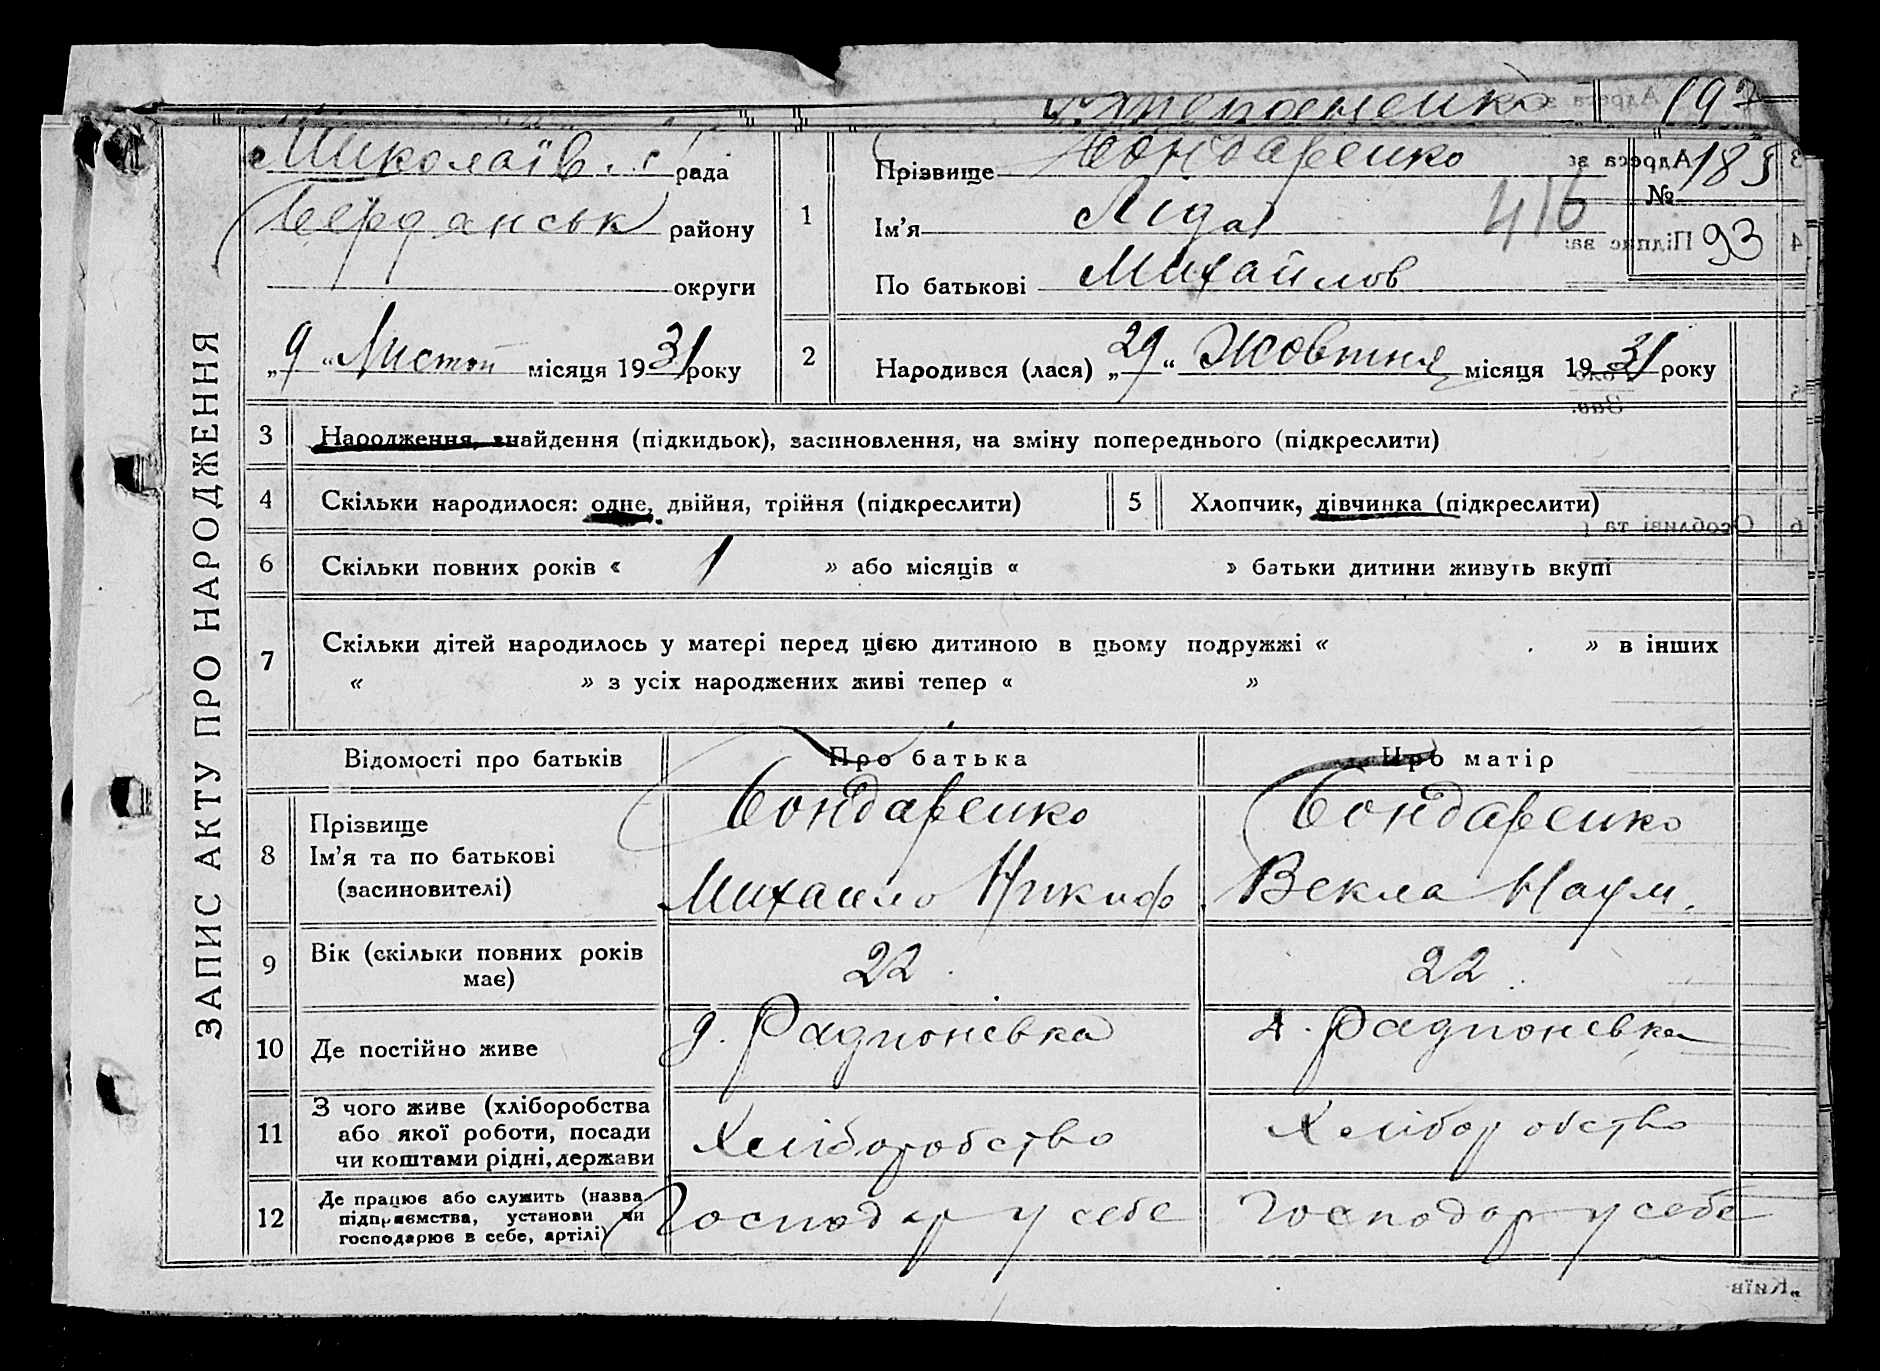 197
Миколаїв. с/рада
Бердянськ району
округи
„9“ Листоп місяця 1931 року
1
Прізвище Бондаренко
Ім’я Ліда
По батькові Михайлов
416
№ 185
93
2
Народився (лася) „29“ Жовтня місяця 1931 року
ЗАПИС АКТУ ПРО НАРОДЖЕННЯ
3 Народження, знайдення (підкидьок), засиновлення, на зміну попереднього (підкреслити)
4 Скільки народилося: одне, двійня, трійня (підкреслити) 5 Хлопчик, дівчинка (підкреслити)
6 Скільки повних років « 1 » або місяців « » батьки дитини живуть вкупі
7 Скільки дітей народилось у матері перед цією дитиною в цьому подружжі « » в інших
« » з усіх народжених живі тепер « »
Відомості про батьків Про батька Про матір
8 Прізвище
Ім’я та по батькові
(засиновителі)
Бондаренко
Михайло Никиф
Бондаренко
Векла Наум.
9 Вік (скільки повних років
має)
22
22
10 Де постійно живе
д. Радионівка
д. Радионівка
11 З чого живе (хліборобства
або якої роботи, посади
чи коштами рідні, держави
Хліборобство
Хліборобство
12 Де працює або служить (назва
підприємства, установи чи
господарює в себе, артілі)
Господар у себе
Господар у себе
Адреса за
Підпис зая
Особливі та
„Київ-